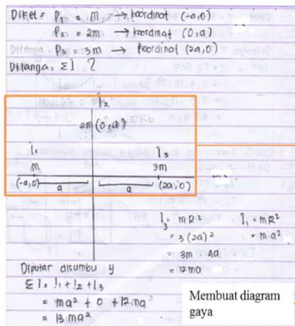 Diket = P1 = m → koordinat (-a,0)
P2 = 2m → koordinat (0,a)
P3 = 3m → koordinat (2a,0)
Ditanya = ΣI ?
I2
2m (0,a)
I1
I3
m
3m
(-a,0)
a
a
(2a,0)
I3 = mR²
= 3(2a)²
= 3m · 4a
= 12ma
I1 = mR²
= m·a²
Diputar disumbu y
ΣI = I1 + I2 + I3
= ma² + 0 + 12ma²
= 13ma²
Membuat diagram
gaya